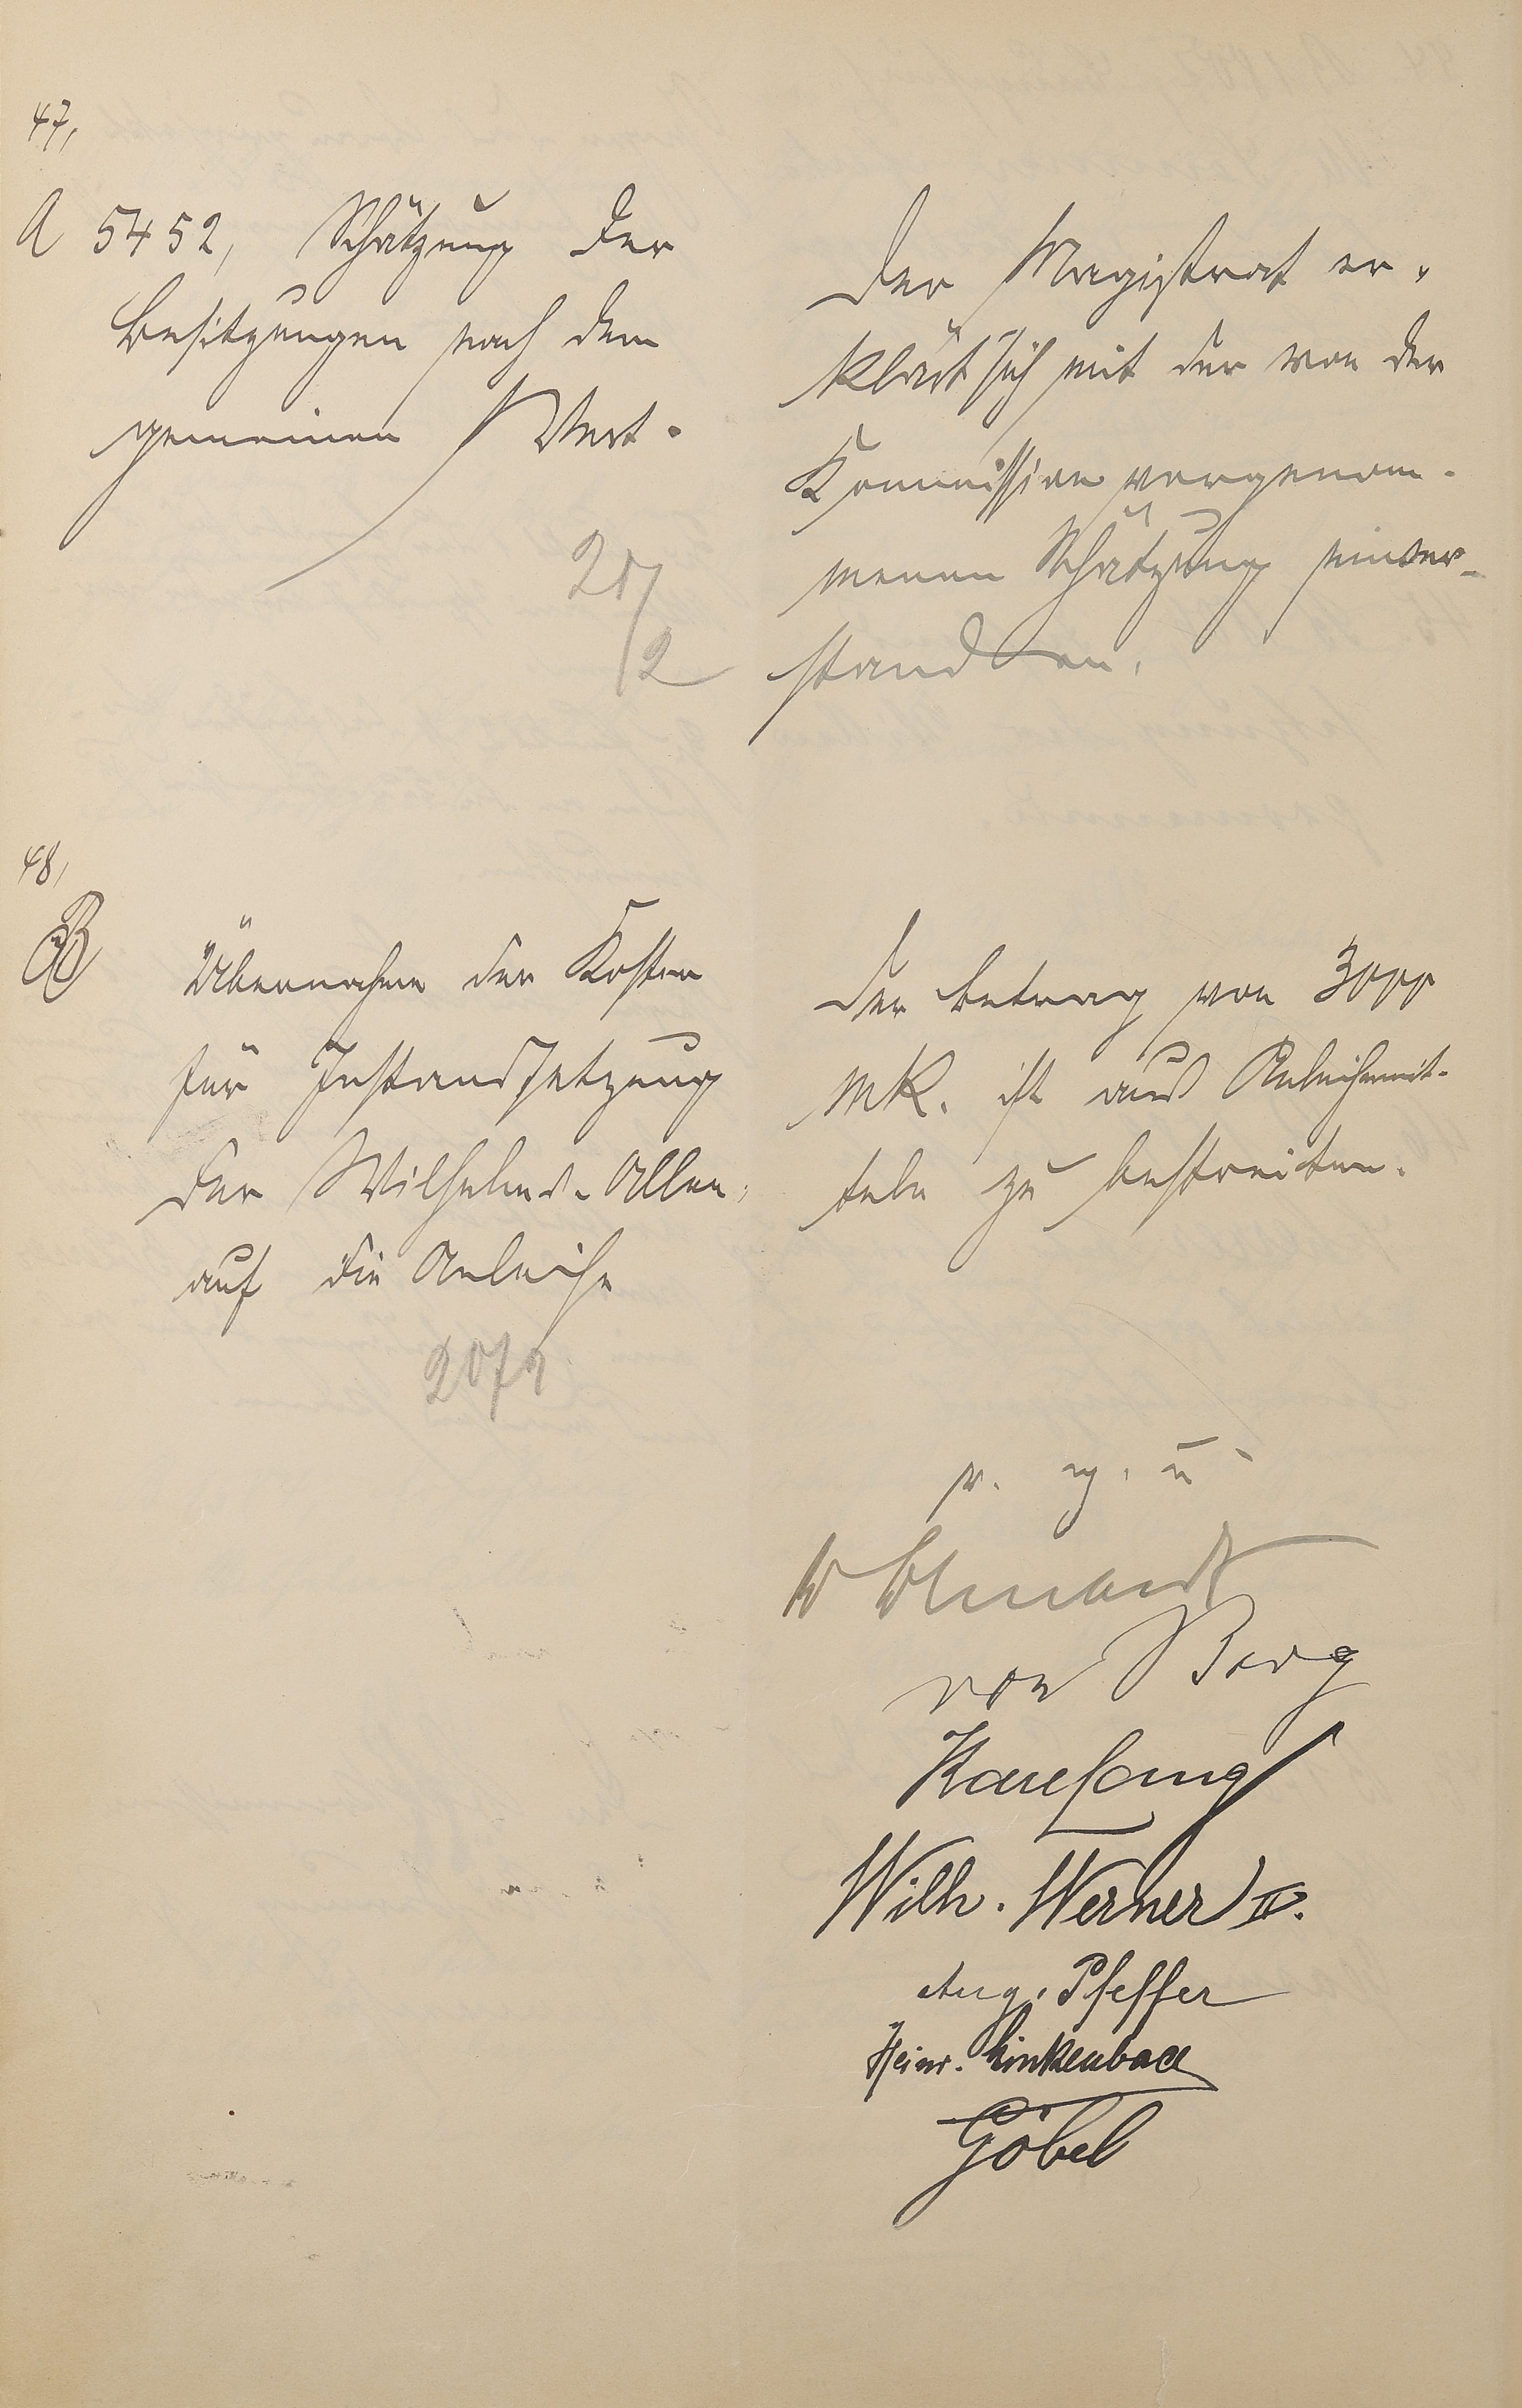 47,
A 5452, Schätzung der
Besitzungen nach dem
gemeinen Wert.
20/2
Der Magistrat er-
klärt sich mit der von der
Kommission vorgenom-
menen Schätzung einver-
standen.
48,
B Übernahme der Kosten
für Instandsetzung
der Wilhelms-Allee,
auf die Anleihe
20/2
Der Betrag von 3000
MK. ist aus Anleihemit-
teln zu bestreiten.
v. g. u.
von Berg
Wilh. Werner II.
Aug. Pfeffer
Heinr. Linkenbach
Göbel